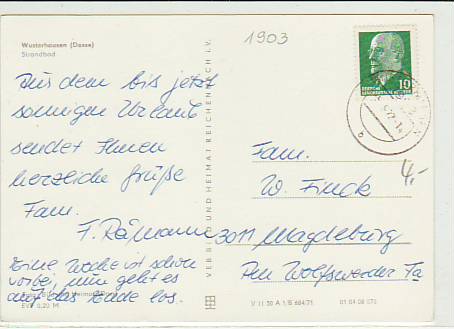 Wusterhausen (Dosse)
Strandbad
1903
Aus dem bis jetzt
sonnigen Urlaub
sendet Ihnen
herzliche Grüße
Fam.
Eine Woche ist schon
vorbei, nun geht es
auf das Ende los.
EVP 0,20 M
VEB BILD UND HEIMAT REICHENBACH i.V.
V 11 50 A 1/B 684/71 01 04 08 070
10
Fam.
W. Finck
3011 Magdeburg
Am Wolfswerder
4,-